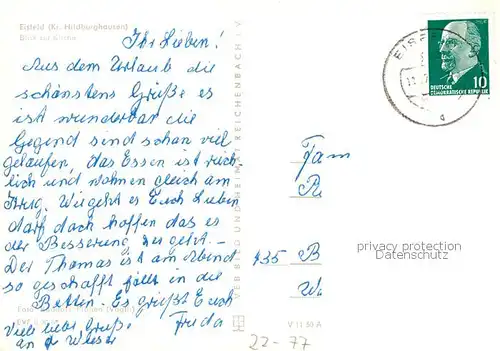 Eisfeld (Kr. Hildburghausen)
Blick zur Kirche
Ihr Lieben!
Aus dem Urlaub die
schönstens Grüße es
ist wunderbar die
Gegend sind schon viel
gelaufen, das Essen ist reich
lich und wohnen gleich am
Wie geht es Euch Lieben
darf doch hoffen das es
der Besserung zu geht. -
Der Thomas ist am Abend
so geschafft fällt in die
Betten. Es grüßt Euch
viele liebe Grüße Frieda
an d Wiese
VEB BILD UND HEIMAT REICHENBACH I. V.
V 11 50 A
EISFELD
DDR
10
DEUTSCHE
DEMOKRATISCHE REPUBLIK
a
Fam
B
privacy protection
Datenschutz
22-77